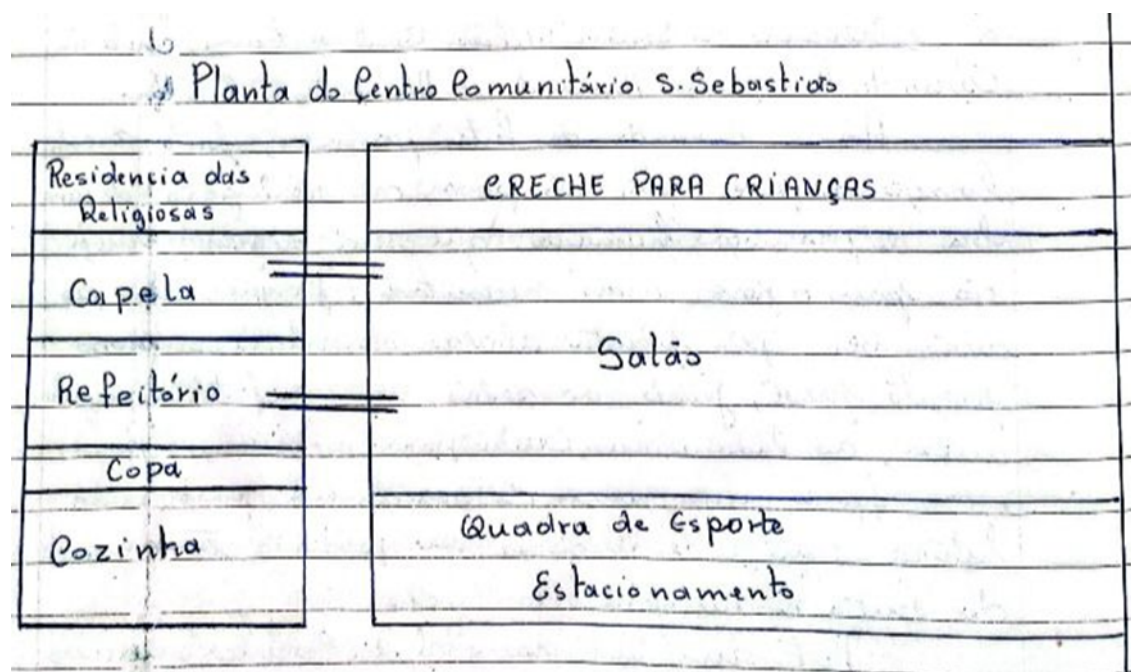 Planta do Centro Comunitário S. Sebastião
Residencia das
Religiosas
Capela
Refeitório
Copa
Cozinha
CRECHE PARA CRIANÇAS
Salão
Quadra de Esporte
Estacionamento